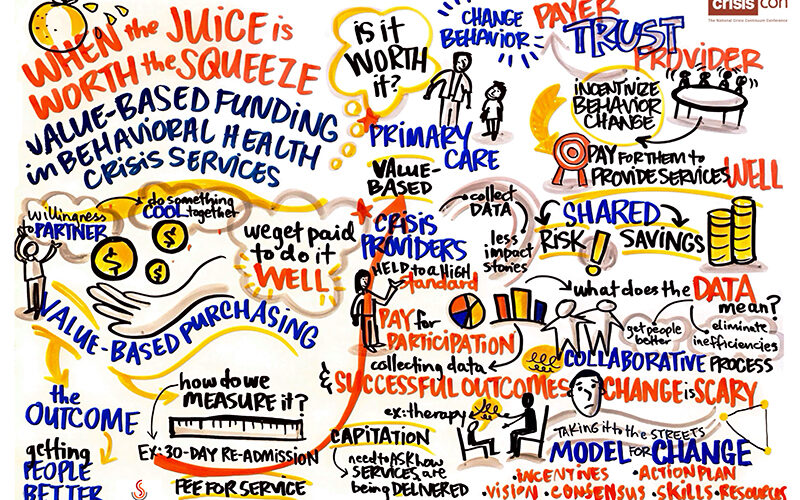 crisis con
The National Crisis Continuum Conference
WHEN the JUICE is
WORTH the SQUEEZE
VALUE-BASED FUNDING
in BEHAVIORAL HEALTH
CRISIS SERVICES
IS it
WORTH
it?
CHANGE
BEHAVIOR
PAYER
TRUST
PROVIDER
INCENTIVIZE
BEHAVIOR
CHANGE
PAY FOR THEM to
PROVIDE SERVICES WELL
PRIMARY
CARE
VALUE-
BASED
willingness
to PARTNER
do something
COOL together
we get paid
to do it
WELL
VALUE-BASED PURCHASING
CRISIS
PROVIDERS
HELD to a HIGH
standard
collect
DATA
less
impact
stories
SHARED
RISK
SAVINGS
!
PAY for
PARTICIPATION
collecting data
& SUCCESSFUL OUTCOMES
what does the DATA
mean?
get people
better
eliminate
inefficiencies
COLLABORATIVE PROCESS
the
OUTCOME
getting
PEOPLE
BETTER
how do we
MEASURE it?
EX: 30-DAY RE-ADMISSION
FEE FOR SERVICE
CAPITATION
need to ASK how
SERVICES are
being DELIVERED
ex: therapy
CHANGE is SCARY
TAKING it to the STREETS
MODEL for CHANGE
• INCENTIVES • ACTION PLAN
• VISION • CONSENSUS • SKILLS • RESOURCES